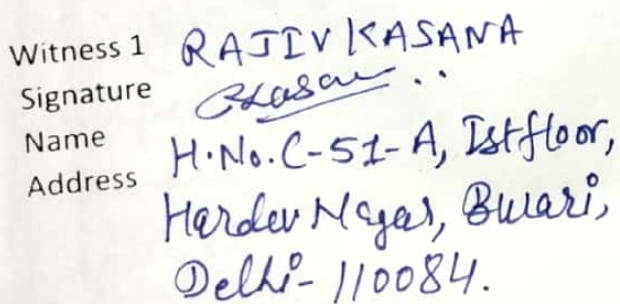 Witness 1 RAJIV KASANA
Signature
Name
Address H.No.C-51-A, Ist floor,
Hardev Nagar, Burari,
Delhi- 110084.